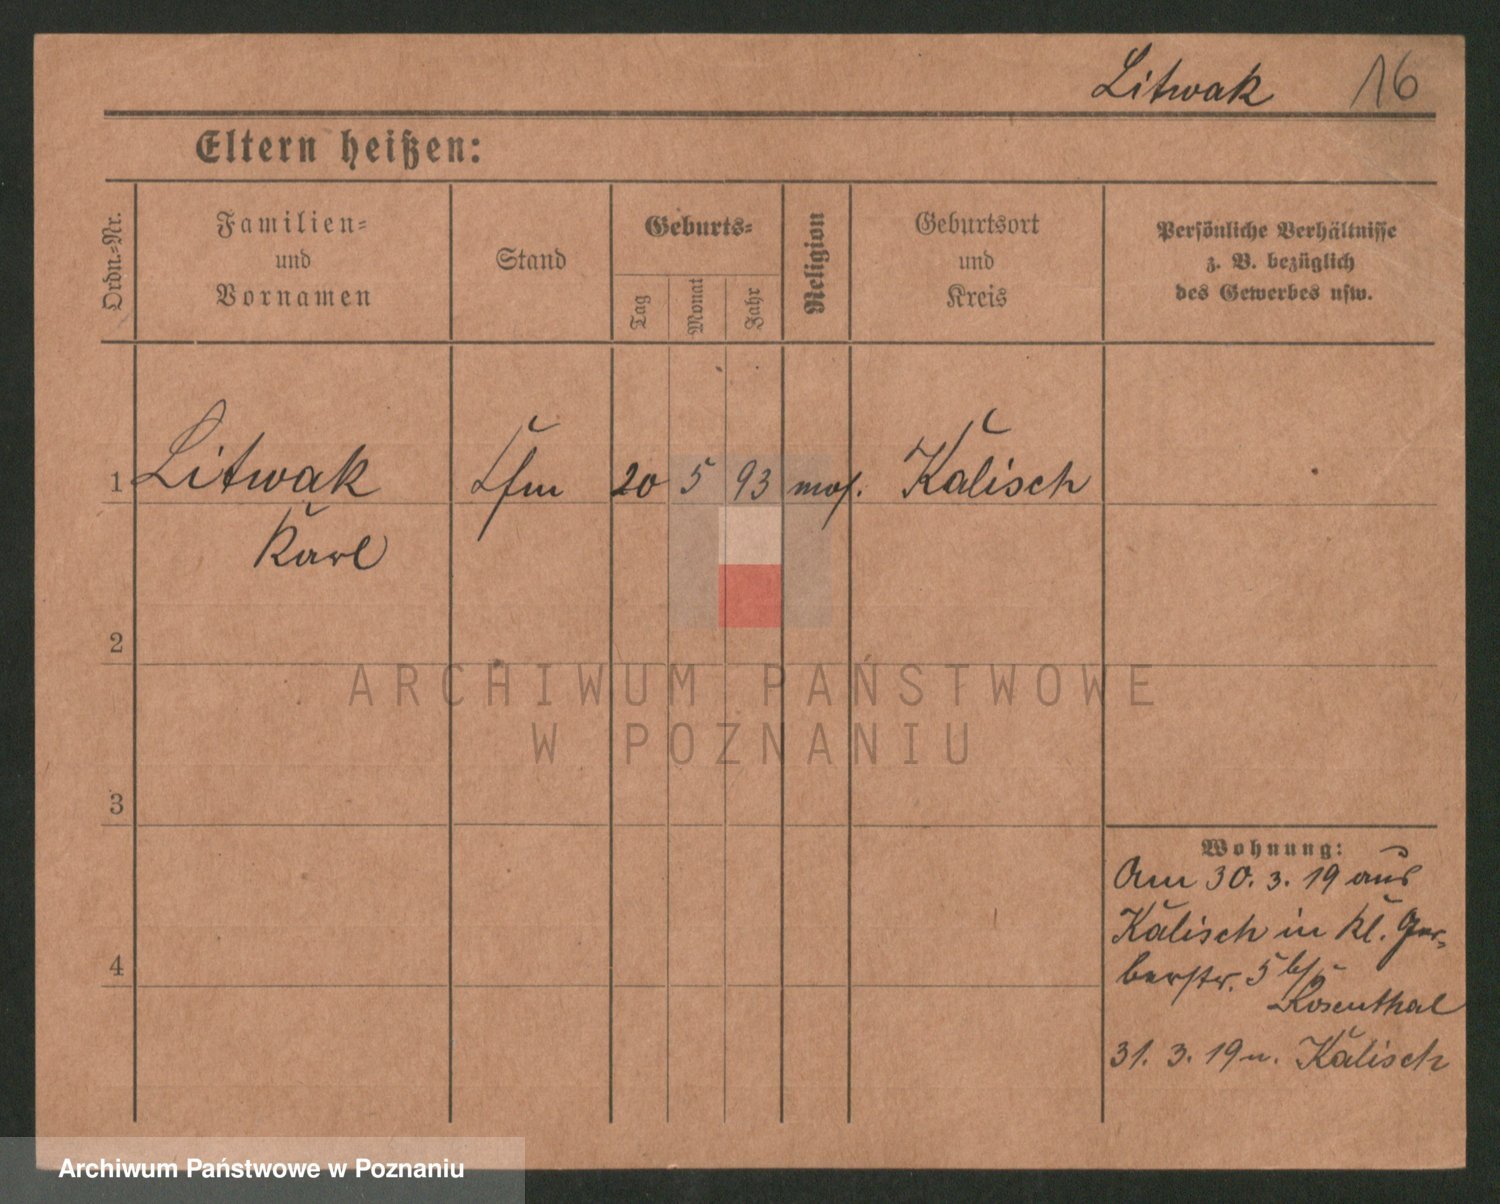 Litwak 16
Eltern heißen:
Ordn.-Nr.
Familien-
und
Vornamen
Stand
Geburts-
Tag
Monat
Jahr
Religion
Geburtsort
und
Kreis
Persönliche Verhältnisse
z. B. bezüglich
des Gewerbes usw.
1 Litwak 20 5 93 mos. Kalisch
Karl
2
ARCHIWUM PAŃSTWOWE
W POZNANIU
3
Wohnung:
Am 30. 3. 19 aus
Kalisch in Kl. Ger-
berstr. 5 bei
Rosenthal
4
31. 3. 19 n. Kalisch
Archiwum Państwowe w Poznaniu